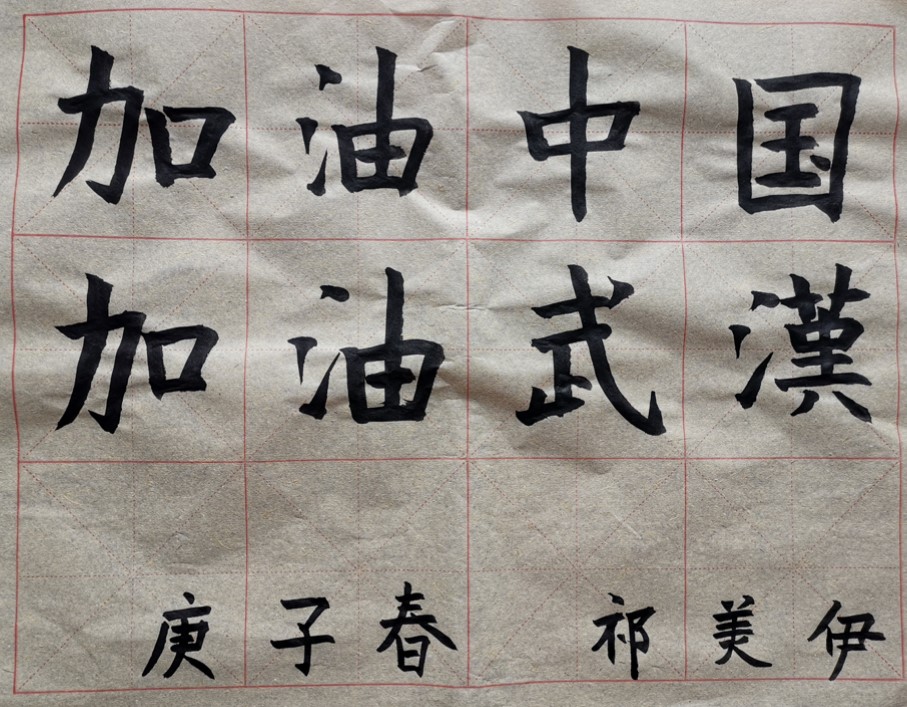 加油中国
加油武漢
庚子春 祁美伊